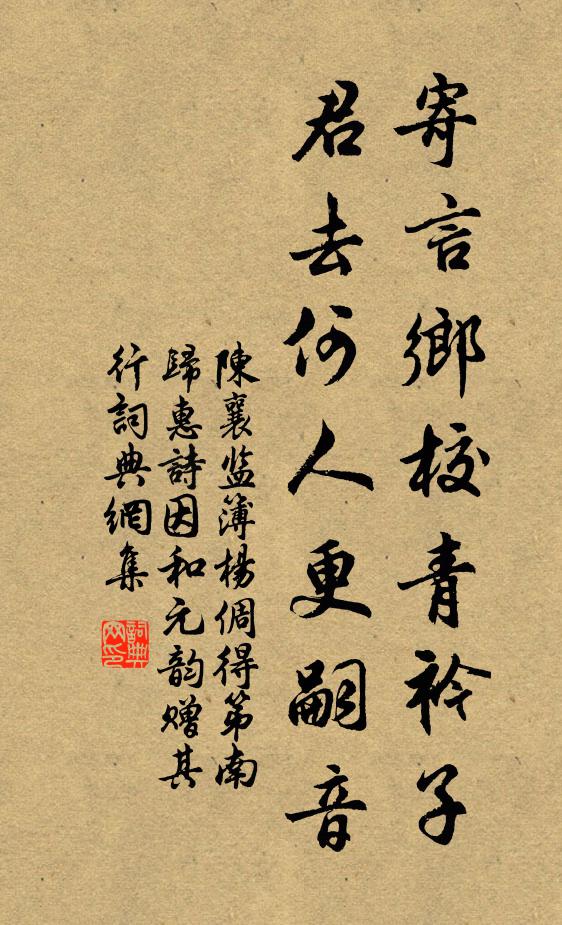 寄言鄉校青衿子
君去何人更嗣音
陳襄监簿楊倜得第南
歸惠詩因和元韵赠其
行詞典網集
詞典
网印